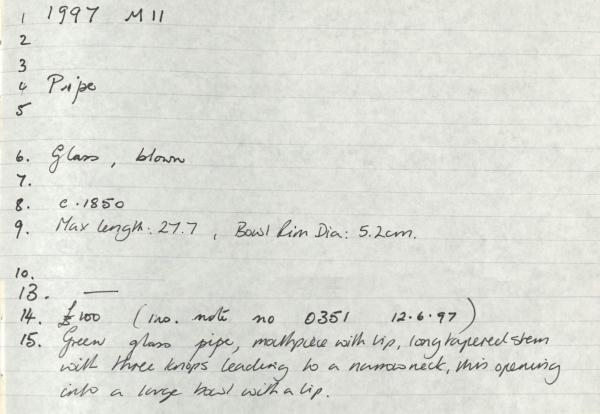 1 1997 M11
2
3
4 Pipe
5
6. Glass, blown
7.
8. c.1850
9. Max length: 27.7, Bowl Rim Dia: 5.2cm.
10.
13. —
14. £100 (inv. note no 0351 12.6.97)
15. Green glass pipe, mouthpiece with lip, long tapered stem
with three knops leading to a narrow neck, this opening
into a large bowl with a lip.